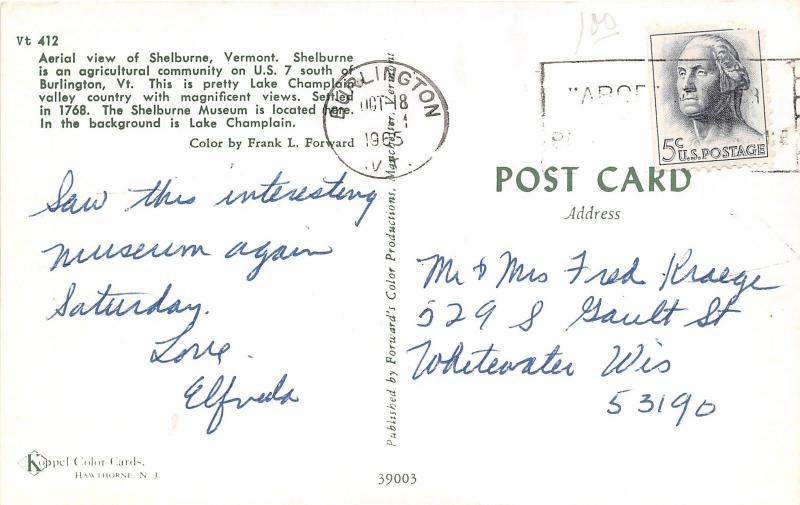 Vt 412
Aerial view of Shelburne, Vermont. Shelburne
is an agricultural community on U.S. 7 south of
Burlington, Vt. This is pretty Lake Champlain
valley country with magnificent views. Settled
in 1768. The Shelburne Museum is located here.
In the background is Lake Champlain.
Color by Frank L. Forward
Saw this interesting
museum again
Saturday.
Love.
Elfreda
Koppel Color Cards,
HAWTHORNE, N. J.
Published by Forward's Color Productions, Manchester, Vermont
39003
100
BURLINGTON
OCT 18
1965
5c U.S. POSTAGE
POST CARD
Address
Mr & Mrs Fred Kraege
529 S Gault St
Whitewater Wis
53190